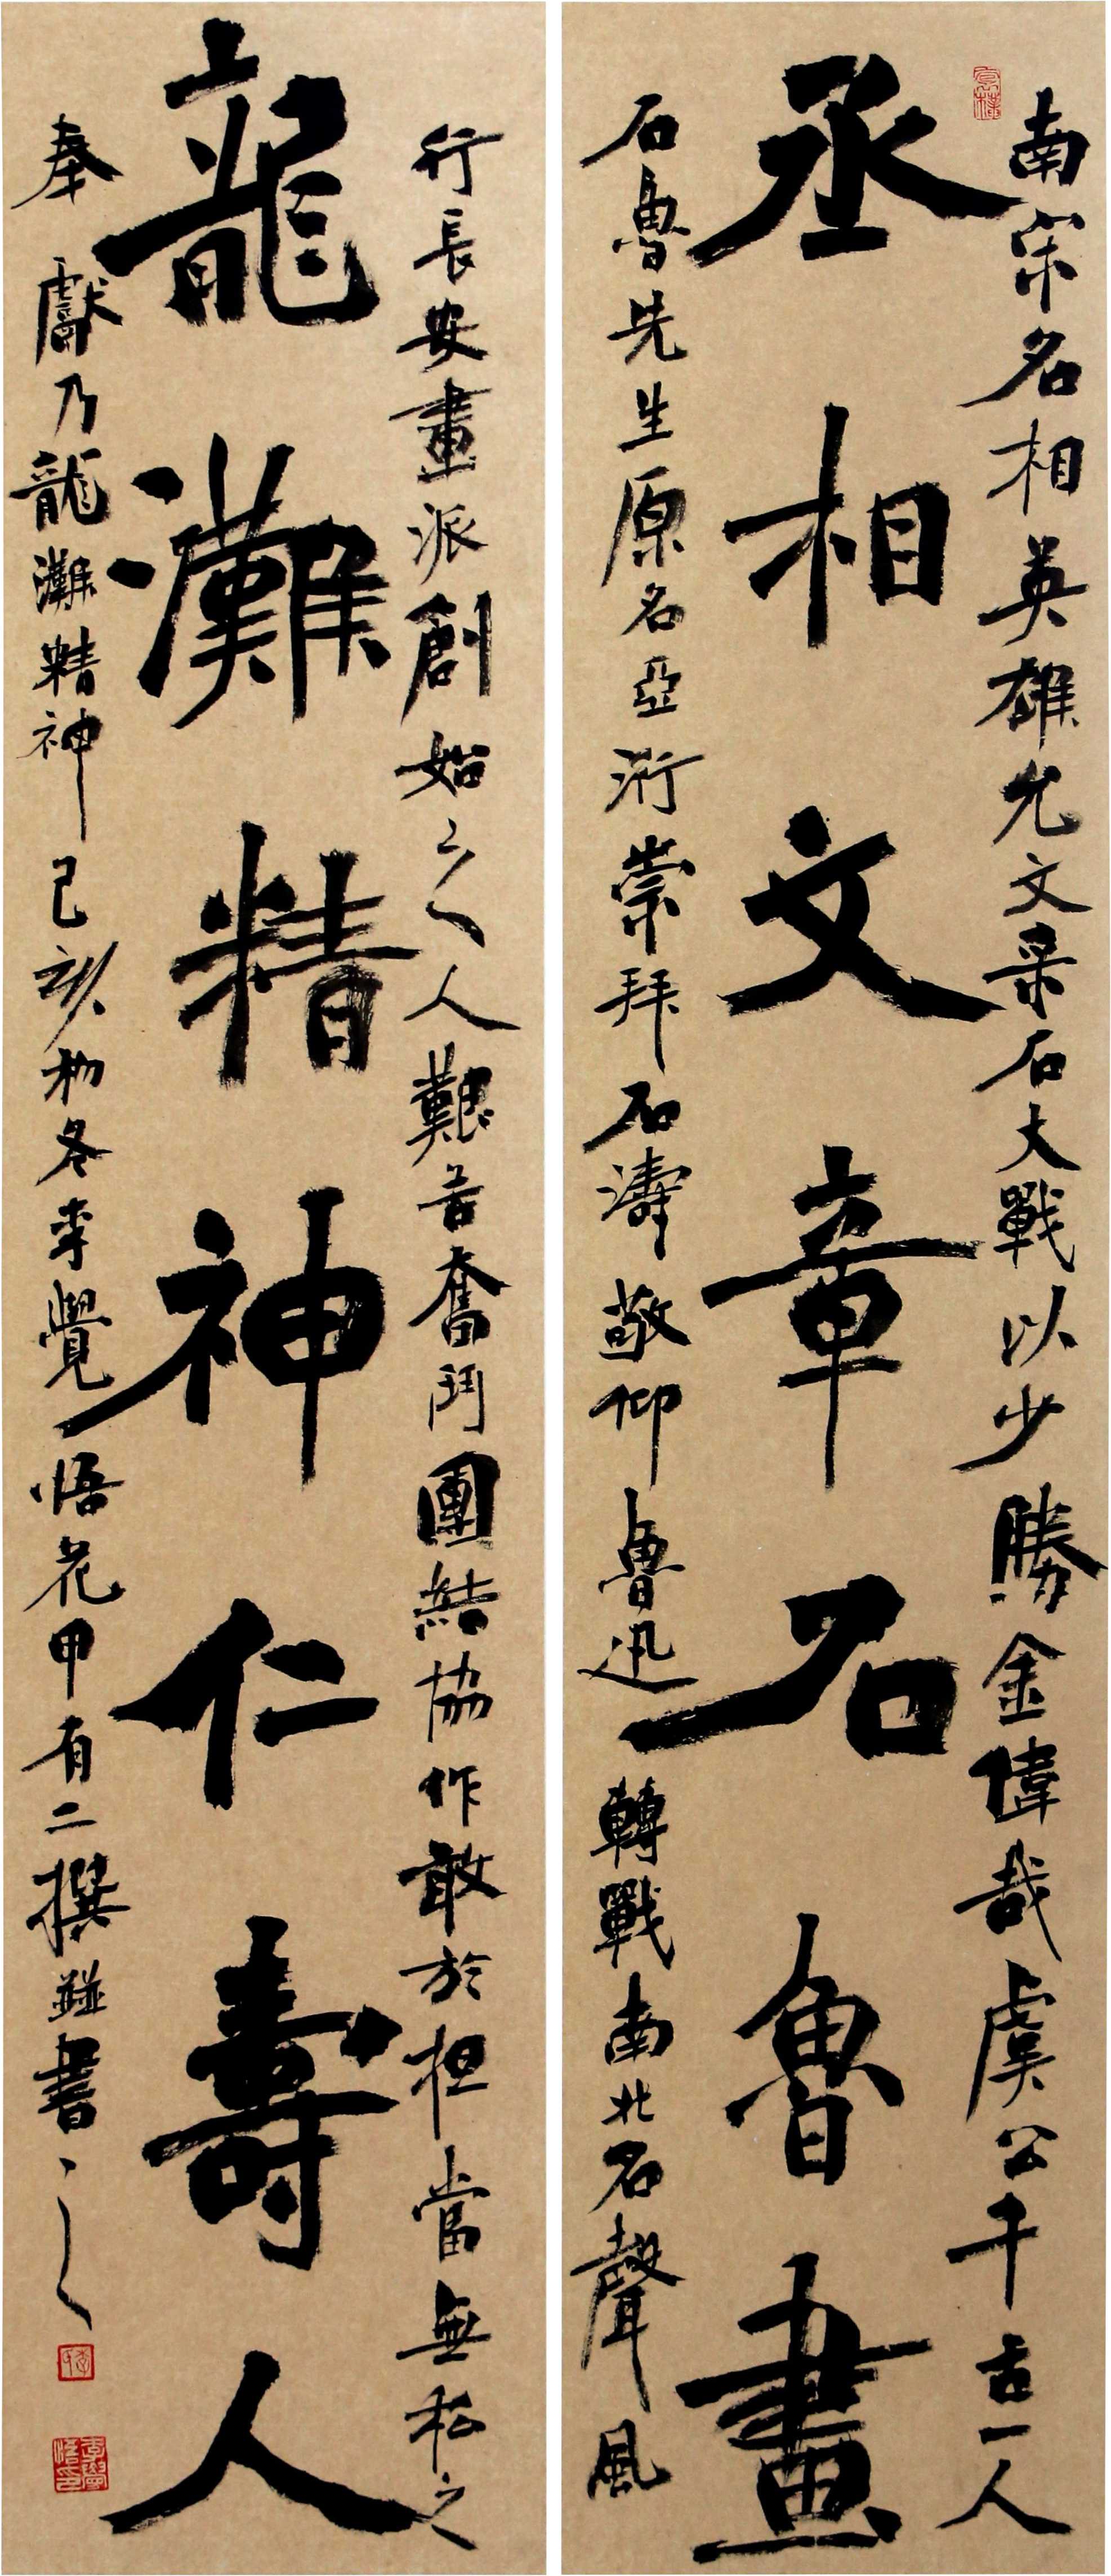 南宋名相英雄允文采石大戰以少勝金偉哉虞公千古一人
丞相文章石魯畫
石魯先生原名亞珩崇拜石濤敬仰魯迅轉戰南北名聲風
行長安畫派創始之人艱苦奮鬥團結協作敢於担當無私之
龍灘精神仁壽人
奉獻乃龍灘精神己亥初冬李覺悟花甲有二撰並書之